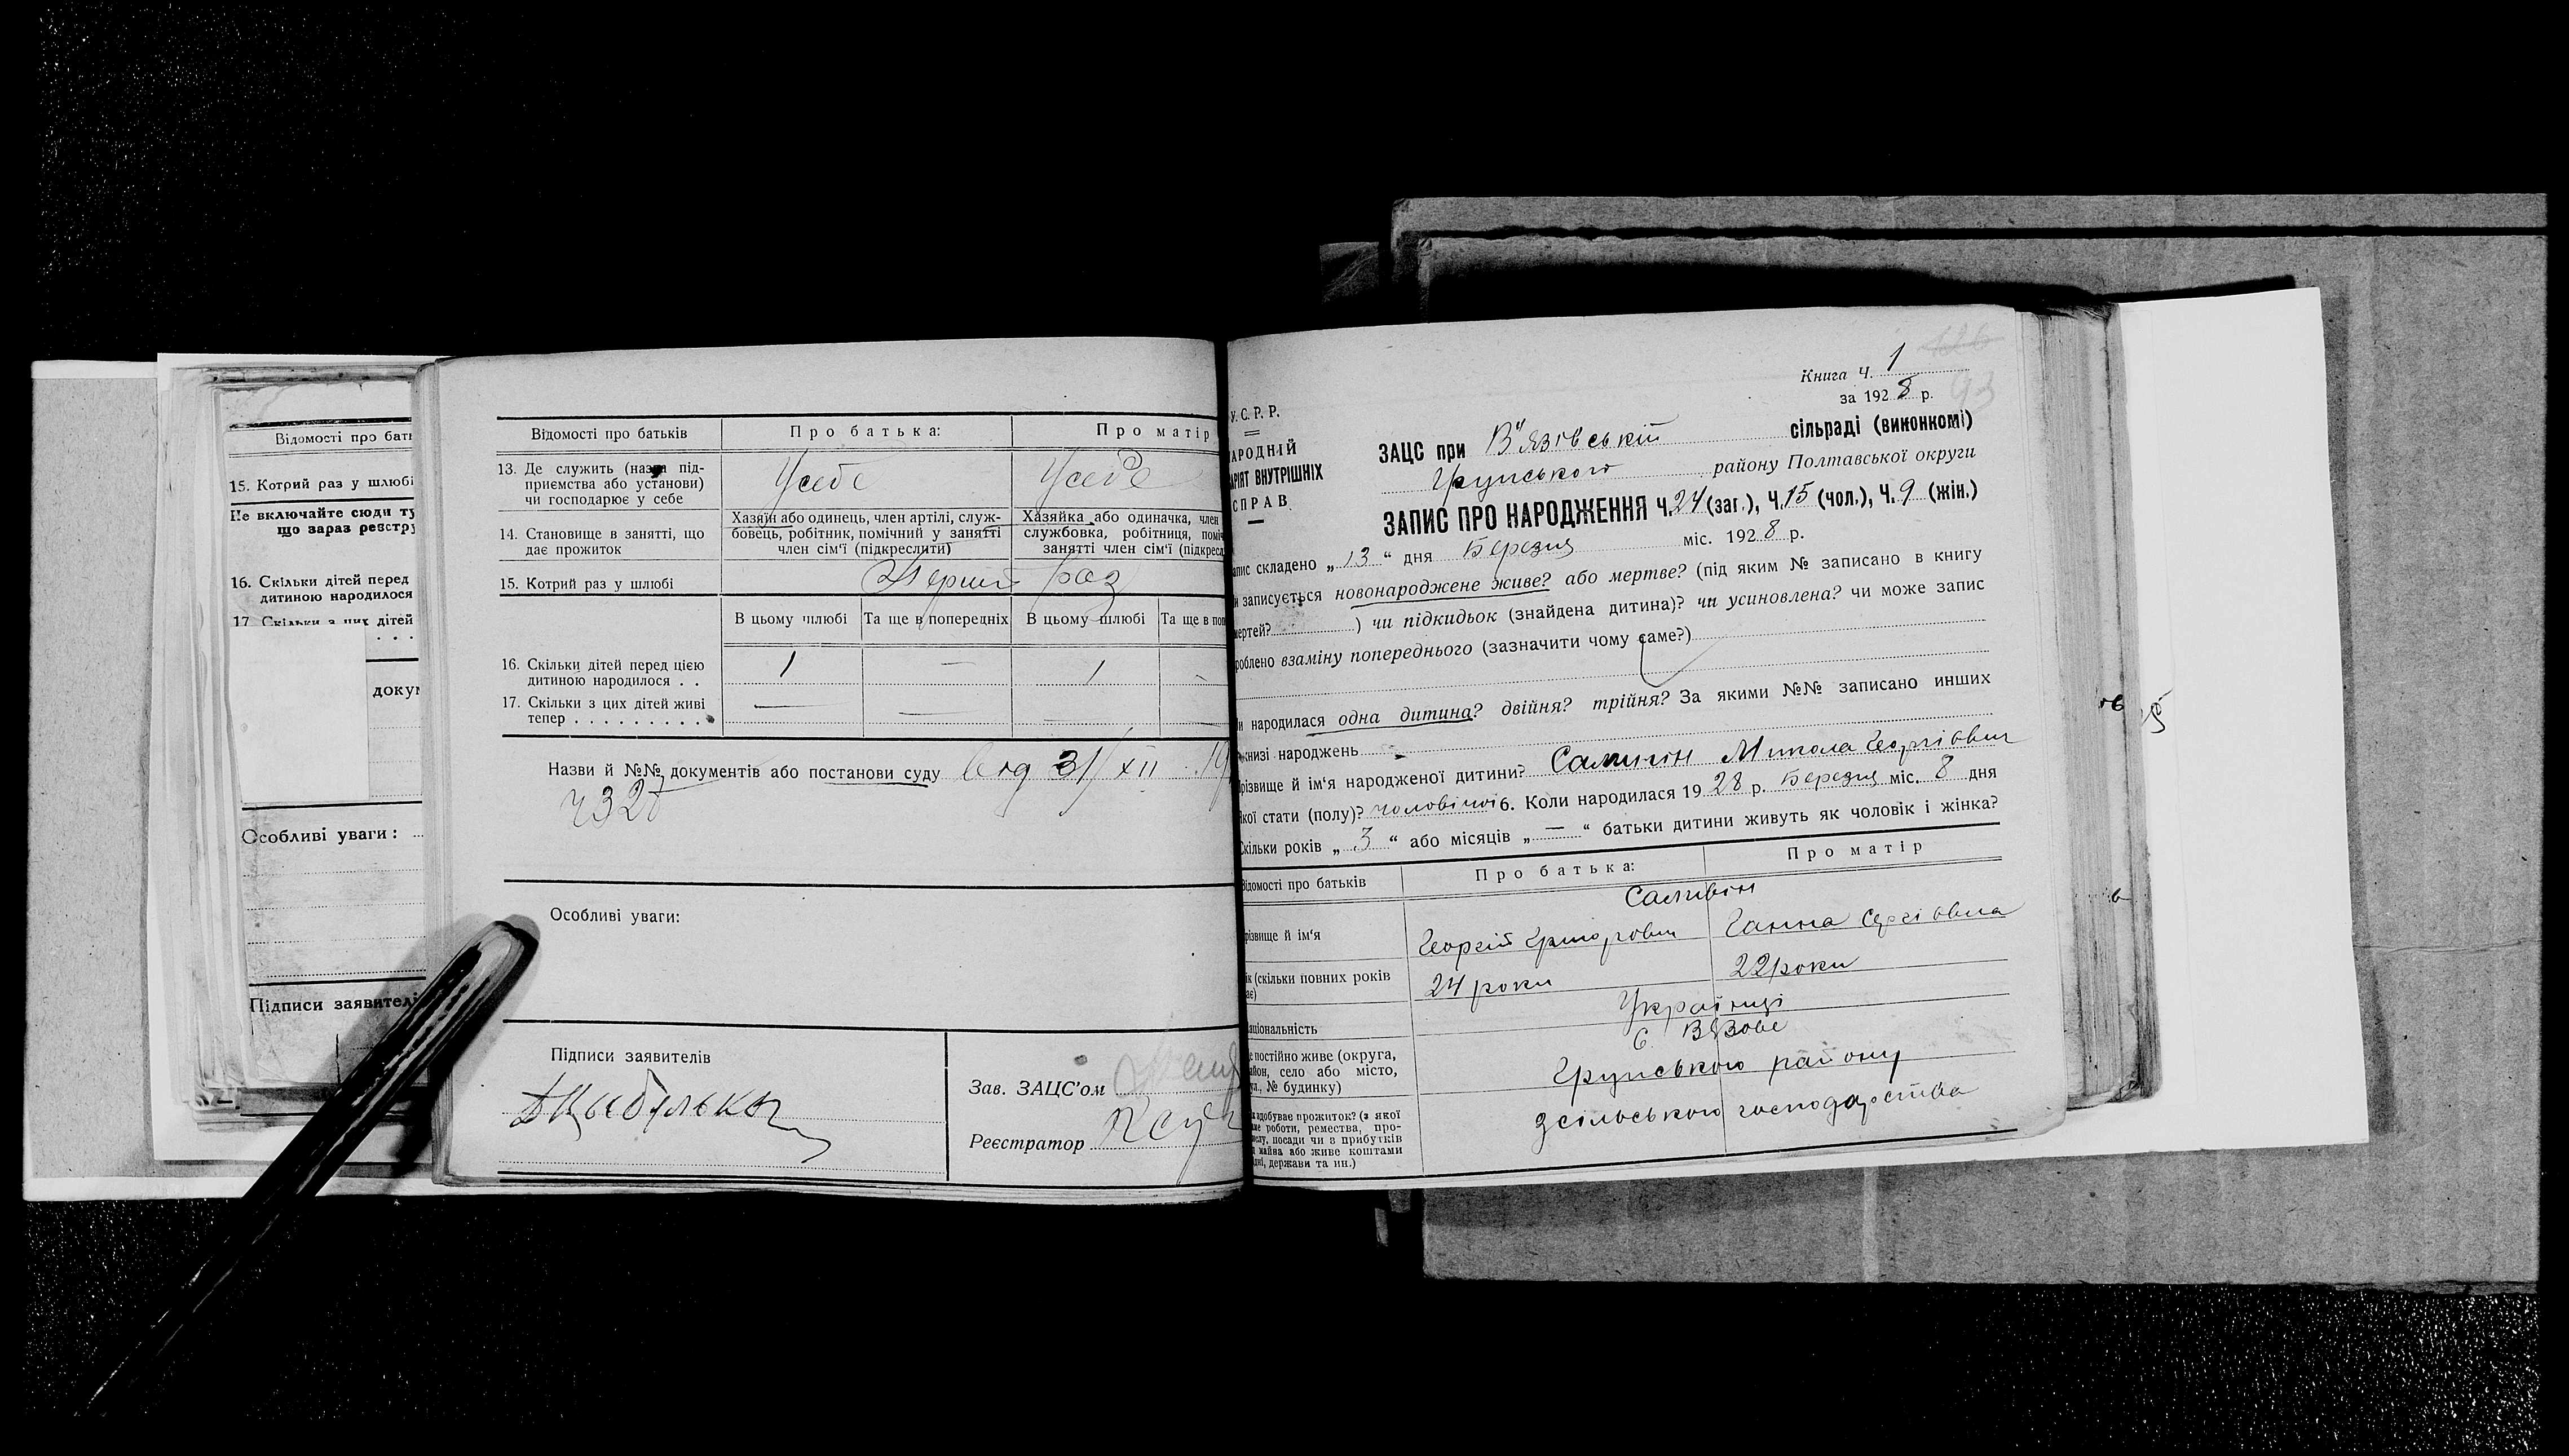 Відомості про бать
15. Котрий раз у шлюбі
Не включайте сюди ту
що зараз реєстру
16. Скільки дітей перед
дитиною народилося
17. Скільки з цих дітей
докум
Особливі уваги:
Підписи заявителі
Відомості про батьків
Про батька:
Про матір
13. Де служить (назва під-
приємства або установи)
чи господарює у себе
Усебе
Усебе
14. Становище в занятті, що
дає прожиток
Хазяїн або одинець, член артілі, служ-
бовець, робітник, помічний у занятті
член сім'ї (підкреслити)
Хазяйка або одиначка, член
службовка, робітниця, поміч
занятті член сім'ї (підкресл
15. Котрий раз у шлюбі
Перший раз
В цьому шлюбі
Та ще в попередніх
В цьому шлюбі
Та ще в поп
16. Скільки дітей перед цією
дитиною народилося . .
1 — 1 -
17. Скільки з цих дітей живі
тепер . . . . . . . . . .
— — — —
Назви й №№ документів або постанови суду
від 31/XII 19
Особливі уваги:
Підписи заявителів
Зав. ЗАЦС'ом
Реєстратор
Книга Ч. 1
за 1928 р.
93
У.С.Р.Р.
АРОДНІЙ
АРІЯТ ВНУТРІШНІХ
СПРАВ.
ЗАЦС при В'язівській сільраді (виконкомі)
Грунського району Полтавської округи
ЗАПИС ПРО НАРОДЖЕННЯ Ч. 24 (заг.), Ч. 15 (чол.), Ч. 9 (жін.)
апис складено „13“ дня Березня міс. 1928 р.
и записується новонароджене живе? або мертве? (під яким № записано в книгу
мертей? ) чи підкидьок (знайдена дитина)? чи усиновлена? чи може запис
роблено взаміну попереднього (зазначити чому саме?)
и народилася одна дитина? двійня? трійня? За якими №№ записано инших
книзі народжень
різвище й ім'я народженої дитини? Микола Георгіович
кої стати (полу)? чоловічої 6. Коли народилася 1928 р. Березня міс. 8 дня
кільки років „3“ або місяців „—“ батьки дитини живуть як чоловік і жінка?
ідомості про батьків
Про батька:
Про матір
різвище й ім'я
Георгій Григорович
Ганна Сергіовна
ік (скільки повних років
ає)
24 роки
22 роки
аціональність
Українці
е постійно живе (округа,
айон, село або місто,
ул., № будинку)
с. Вязове
Грунського району
к здобуває прожиток? (з якої
ме роботи, ремества, про-
ислу, посади чи в прибутків
д майна або живе коштами
дні, держави та ин.)
зсільського господарства